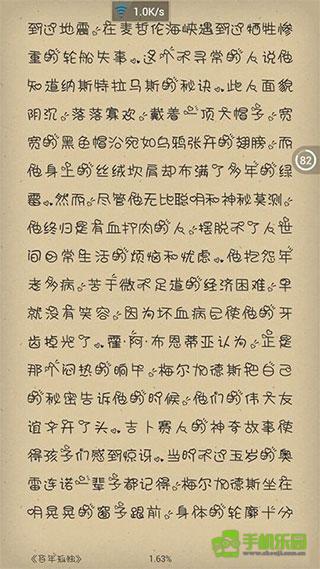 1.0K/s
到过地震。在麦哲伦海峡遇到过牺牲惨
重的轮船失事。这个不寻常的人说他
知道纳斯特拉马斯的秘诀。此人面貌
阴沉。落落寡欢。戴着一顶大帽子。宽
宽的黑色帽沿宛如乌鸦张开的翅膀。而
他身上的丝绒坎肩却布满了多年的绿
霉。然而。尽管他无比聪明和神秘莫测。
他终归是有血打肉的人。摆脱不了人世
间日常生活的烦恼和忧虑。他抱怨年
老多病。苦于微不足道的经济困难。早
就没有笑容。因为坏血病已使他的牙
齿掉光了。霍·阿·布恩蒂亚认为。正是
那个闷热的晌午。梅尔加德斯把自己
的秘密告诉他的时候。他们的伟大友
谊才开了头。吉卜赛人的神奇故事使
得孩子们感到惊讶。当时不过五岁的奥
雷连诺一辈子都记得。梅尔加德斯坐在
明晃晃的窗子跟前。身体的轮廓十分
82
《百年孤独》
1.63%
手机乐园